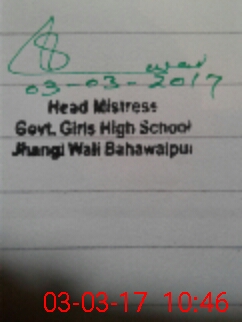 03-03-2017
Head Mistress
Govt. Girls High School
Jhangi Wali Bahawalpur
03-03-17 10:46